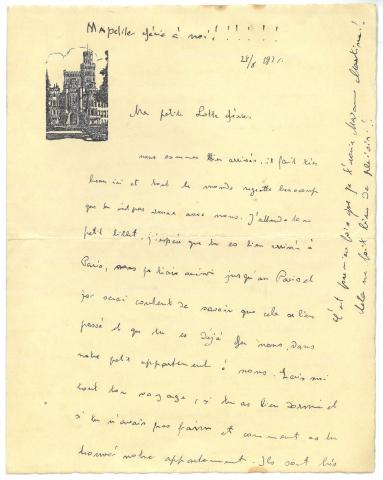 Ma petite chérie à moi! ! ! ! ! !
28/8 197
Ma petite Lotte chérie,
nous sommes bien arrivés, il fait très
beau ici et tout le monde regrette beaucoup
que tu n'es pas venue avec nous. J'attends ton
petit billet, j'espère que tu es bien arrivée à
Paris, jusqu'au Paris et
je serai content de savoir que cela se bien
passé et que tu es déjà chez nous, dans
notre petit appartement à nous. Ecris moi
tout ton voyage, si tu as bien dormi et
si tu n'avais pas faim et comment as tu
trouvé notre appartement. Ils sont très
C'est première fois que je t'écris Madame
Cela me fait bien de plaisir!!